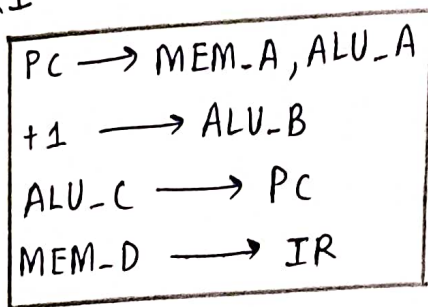 PC → MEM_A, ALU_A
+1 → ALU_B
ALU_C → PC
MEM_D → IR